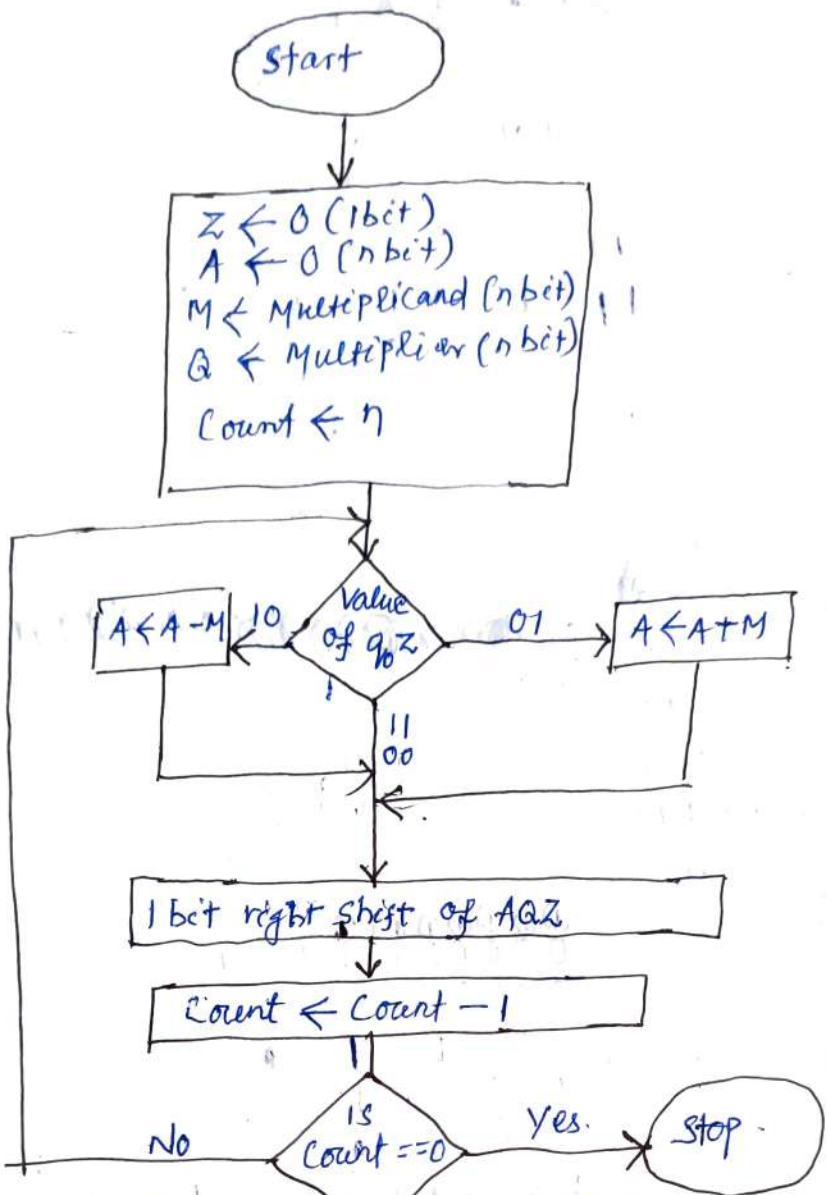 Start
Z ← 0 (1bit)
A ← 0 (n bit)
M ← Multiplicand (n bit)
Q ← Multiplier (n bit)
Count ← n
Value
of q₀z
10
A ← A - M
01
A ← A + M
11
00
1 bit right shift of AQZ
Count ← Count - 1
is
Count ==0
No
Yes.
Stop.